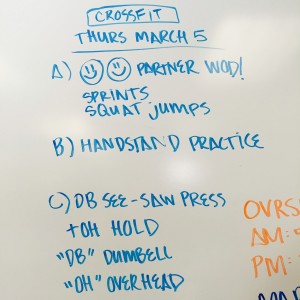 CROSSFIT
THURS MARCH 5
A) PARTNER WOD!
SPRINTS
SQUAT JUMPS
B) HANDSTAND PRACTICE
C) DB SEE-SAW PRESS
+ OH HOLD
"DB" DUMBELL
"OH" OVERHEAD
OVRS
AM:
PM: